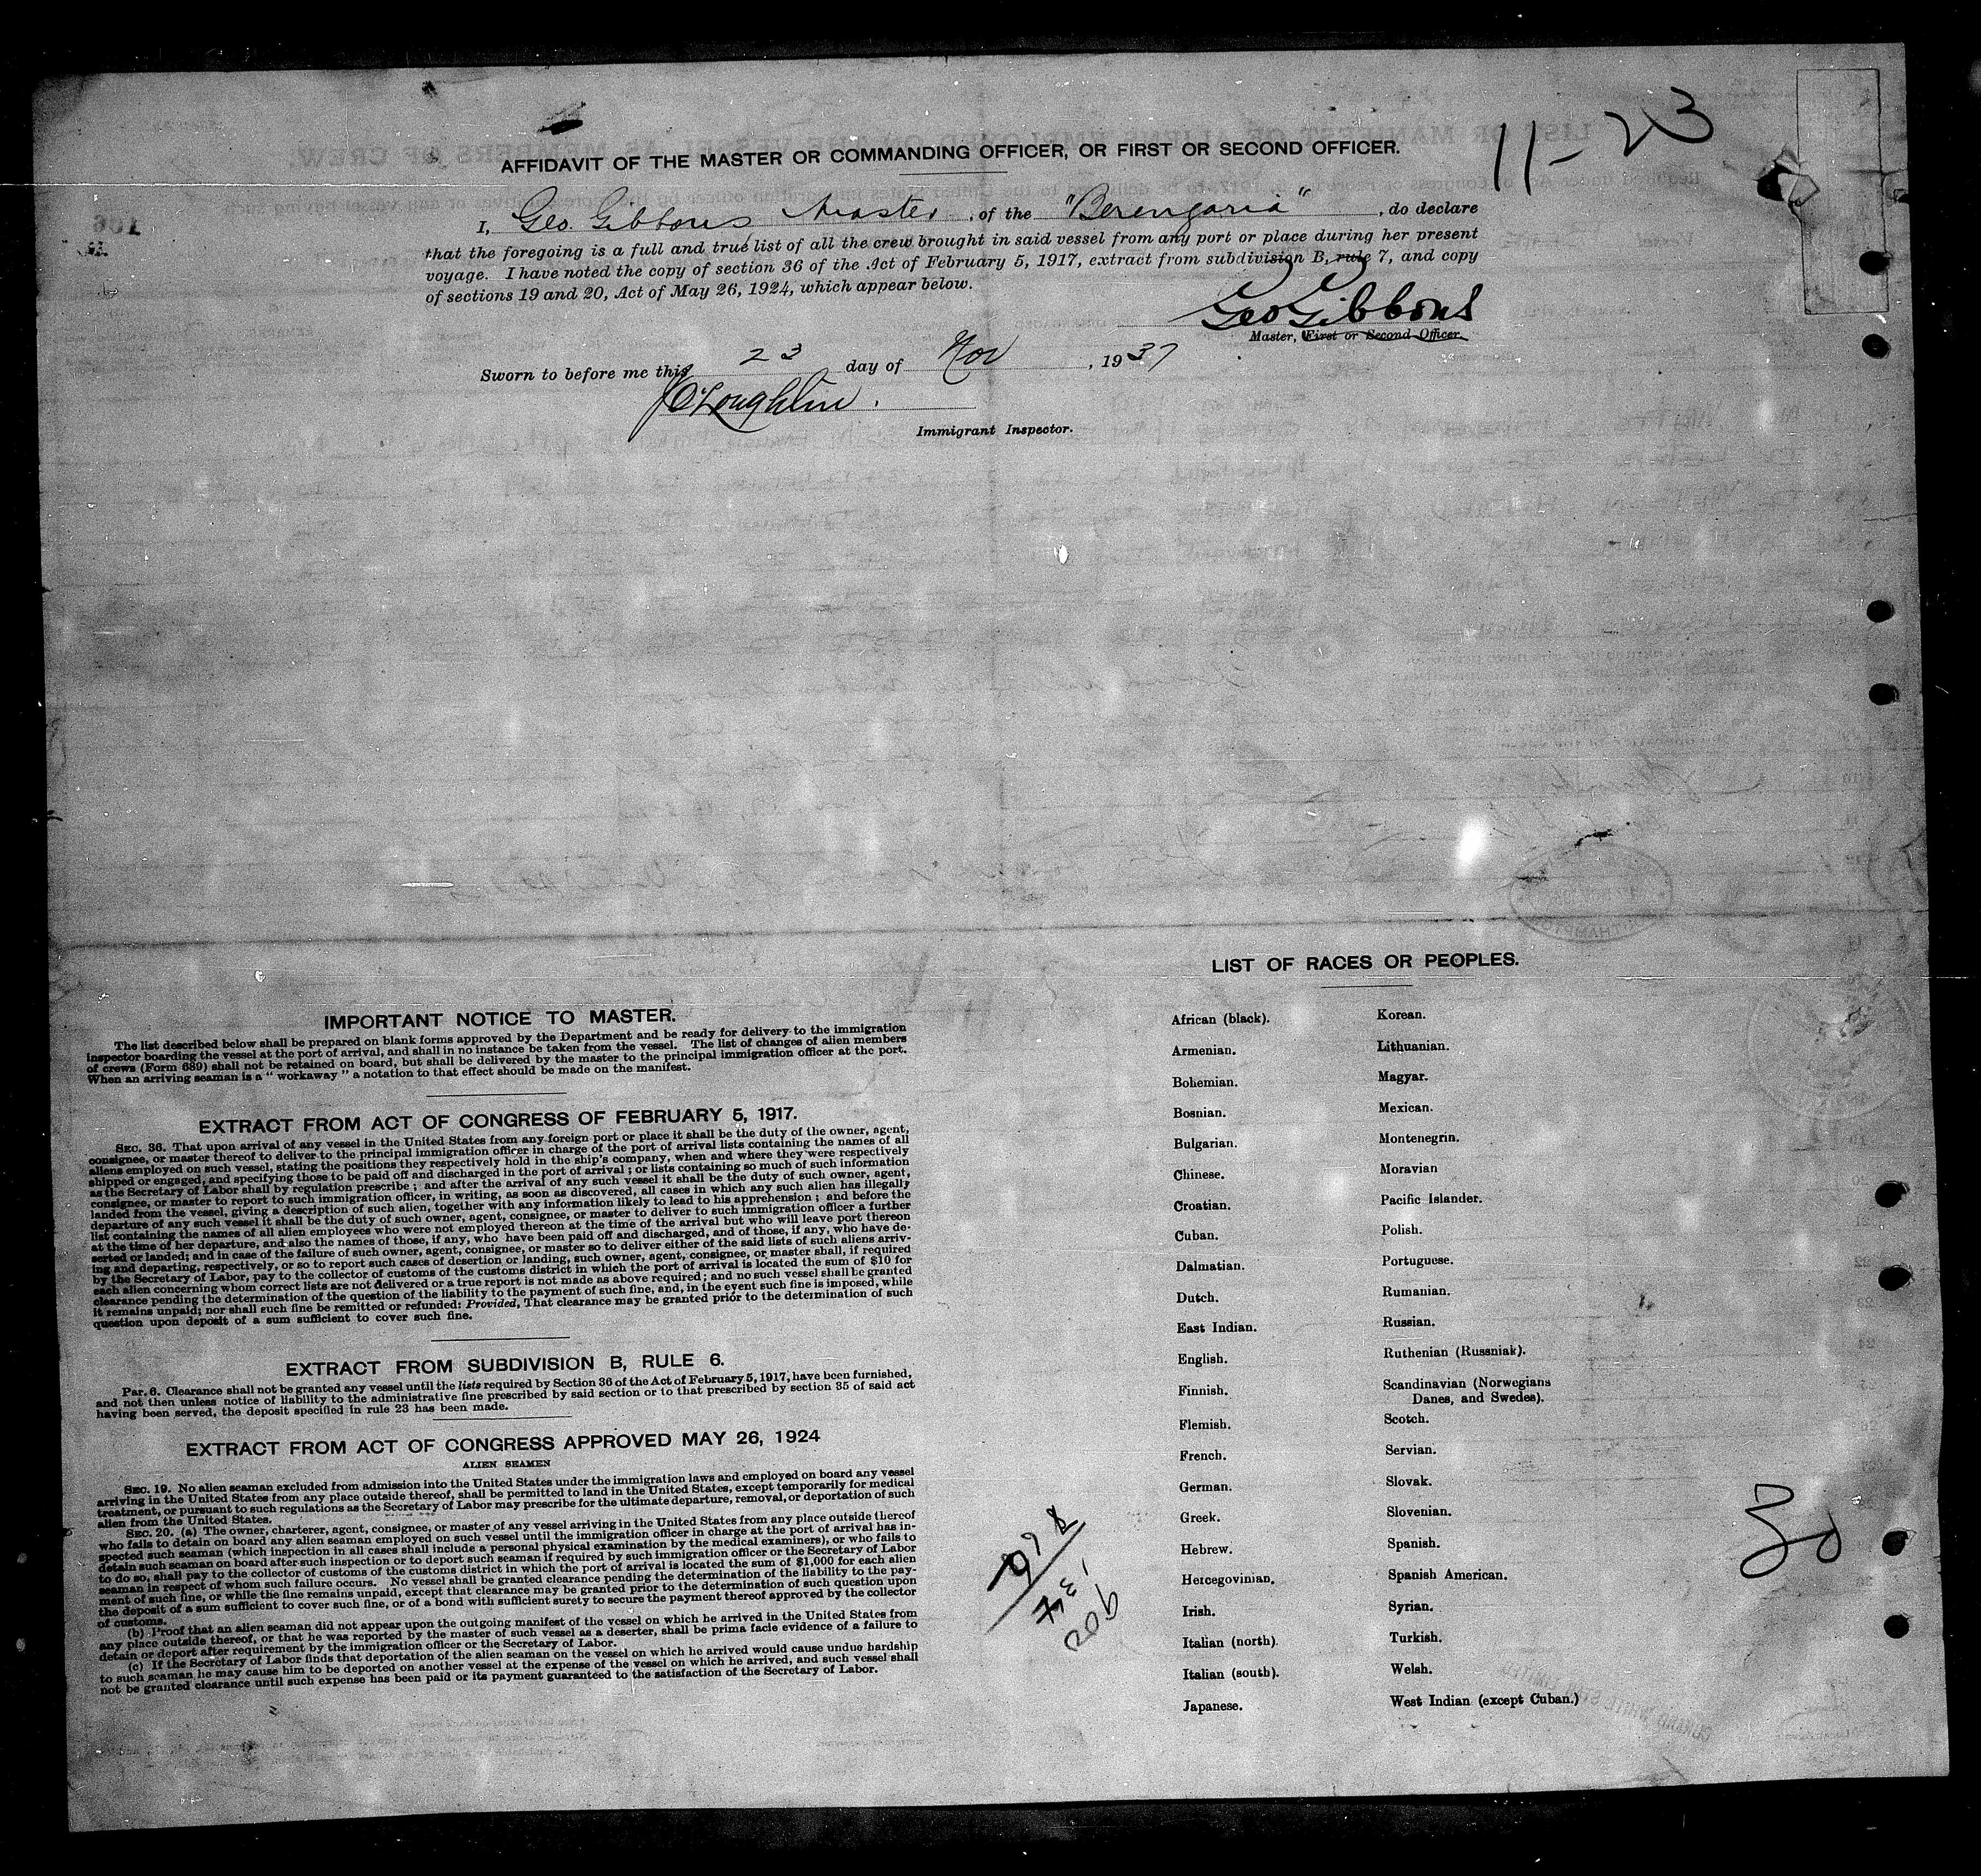 11-23
AFFIDAVIT OF THE MASTER OR COMMANDING OFFICER, OR FIRST OR SECOND OFFICER.
I, Geo. Gibbons Master, of the "Berengaria", do declare
that the foregoing is a full and true list of all the crew brought in said vessel from any port or place during her present
voyage. I have noted the copy of section 36 of the Act of February 5, 1917, extract from subdivision B, rule 7, and copy
of sections 19 and 20, Act of May 26, 1924, which appear below.
Geo Gibbons
Master, First or Second Officer.
Sworn to before me this 23 day of Nov, 1937
J O'Loughlin.
Immigrant Inspector.
IMPORTANT NOTICE TO MASTER.
The list described below shall be prepared on blank forms approved by the Department and be ready for delivery to the immigration
inspector boarding the vessel at the port of arrival, and shall in no instance be taken from the vessel. The list of changes of alien members
of crews (Form 689) shall not be retained on board, but shall be delivered by the master to the principal immigration officer at the port.
When an arriving seaman is a "workaway" a notation to that effect should be made on the manifest.
EXTRACT FROM ACT OF CONGRESS OF FEBRUARY 5, 1917.
SEC. 36. That upon arrival of any vessel in the United States from any foreign port or place it shall be the duty of the owner, agent,
consignee, or master thereof to deliver to the principal immigration officer in charge of the port of arrival lists containing the names of all
aliens employed on such vessel, stating the positions they respectively hold in the ship's company, when and where they were respectively
shipped or engaged, and specifying those to be paid off and discharged in the port of arrival; or lists containing so much of such information
as the Secretary of Labor shall by regulation prescribe; and after the arrival of any such vessel it shall be the duty of such owner, agent,
consignee, or master to report to such immigration officer, in writing, as soon as discovered, all cases in which any such alien has illegally
landed from the vessel, giving a description of such alien, together with any information likely to lead to his apprehension; and before the
departure of any such vessel it shall be the duty of such owner, agent, consignee, or master to deliver to such immigration officer a further
list containing the names of all alien employees who were not employed thereon at the time of the arrival but who will leave port thereon
at the time of her departure, and also the names of those, if any, who have been paid off and discharged, and of those, if any, who have de-
serted or landed; and in case of the failure of such owner, agent, consignee, or master so to deliver either of the said lists of such aliens arriv-
ing and departing, respectively, or so to report such cases of desertion or landing, such owner, agent, consignee, or master shall, if required
by the Secretary of Labor, pay to the collector of customs of the customs district in which the port of arrival is located the sum of $10 for
each alien concerning whom correct lists are not delivered or a true report is not made as above required; and no such vessel shall be granted
clearance pending the determination of the question of the liability to the payment of such fine, and, in the event such fine is imposed, while
it remains unpaid; nor shall such fine be remitted or refunded: Provided, That clearance may be granted prior to the determination of such
question upon deposit of a sum sufficient to cover such fine.
EXTRACT FROM SUBDIVISION B, RULE 6.
Par. 6. Clearance shall not be granted any vessel until the lists required by Section 36 of the Act of February 5, 1917, have been furnished,
and not then unless notice of liability to the administrative fine prescribed by said section or to that prescribed by section 35 of said act
having been served, the deposit specified in rule 23 has been made.
EXTRACT FROM ACT OF CONGRESS APPROVED MAY 26, 1924
ALIEN SEAMEN
SEC. 19. No alien seaman excluded from admission into the United States under the immigration laws and employed on board any vessel
arriving in the United States from any place outside thereof, shall be permitted to land in the United States, except temporarily for medical
treatment, or pursuant to such regulations as the Secretary of Labor may prescribe for the ultimate departure, removal, or deportation of such
alien from the United States.
SEC. 20. (a) The owner, charterer, agent, consignee, or master of any vessel arriving in the United States from any place outside thereof
who fails to detain on board any alien seaman employed on such vessel until the immigration officer in charge at the port of arrival has in-
spected such seaman (which inspection in all cases shall include a personal physical examination by the medical examiners), or who fails to
detain such seaman on board after such inspection or to deport such seaman if required by such immigration officer or the Secretary of Labor
to do so, shall pay to the collector of customs of the customs district in which the port of arrival is located the sum of $1,000 for each alien
seaman in respect of whom such failure occurs. No vessel shall be granted clearance pending the determination of the liability to the pay-
ment of such fine, or while the fine remains unpaid, except that clearance may be granted prior to the determination of such question upon
the deposit of a sum sufficient to cover such fine, or of a bond with sufficient surety to secure the payment thereof approved by the collector
of customs.
(b) Proof that an alien seaman did not appear upon the outgoing manifest of the vessel on which he arrived in the United States from
any place outside thereof, or that he was reported by the master of such vessel as a deserter, shall be prima facie evidence of a failure to
detain or deport after requirement by the immigration officer or the Secretary of Labor.
(c) If the Secretary of Labor finds that deportation of the alien seaman on the vessel on which he arrived would cause undue hardship
to such seaman he may cause him to be deported on another vessel at the expense of the vessel on which he arrived, and such vessel shall
not be granted clearance until such expense has been paid or its payment guaranteed to the satisfaction of the Secretary of Labor.
LIST OF RACES OR PEOPLES.
African (black).
Armenian.
Bohemian.
Bosnian.
Bulgarian.
Chinese.
Croatian.
Cuban.
Dalmatian.
Dutch.
East Indian.
English.
Finnish.
Flemish.
French.
German.
Greek.
Hebrew.
Hercegovinian.
Irish.
Italian (north).
Italian (south).
Japanese.
Korean.
Lithuanian.
Magyar.
Mexican.
Montenegrin.
Moravian
Pacific Islander.
Polish.
Portuguese.
Rumanian.
Russian.
Ruthenian (Russniak).
Scandinavian (Norwegians
Danes, and Swedes).
Scotch.
Servian.
Slovak.
Slovenian.
Spanish.
Spanish American.
Syrian.
Turkish.
Welsh.
West Indian (except Cuban.)